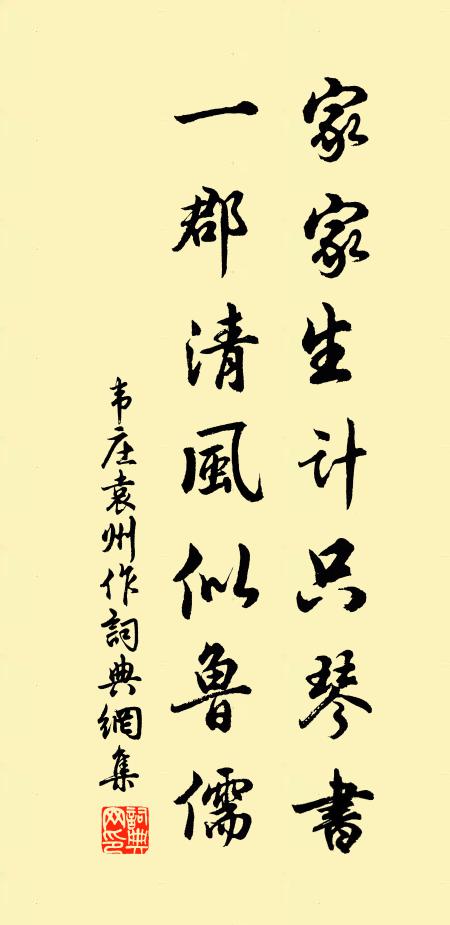 家家生计只琴書
一郡清風似魯儒
韦庄袁州作詞典網集
詞典网印